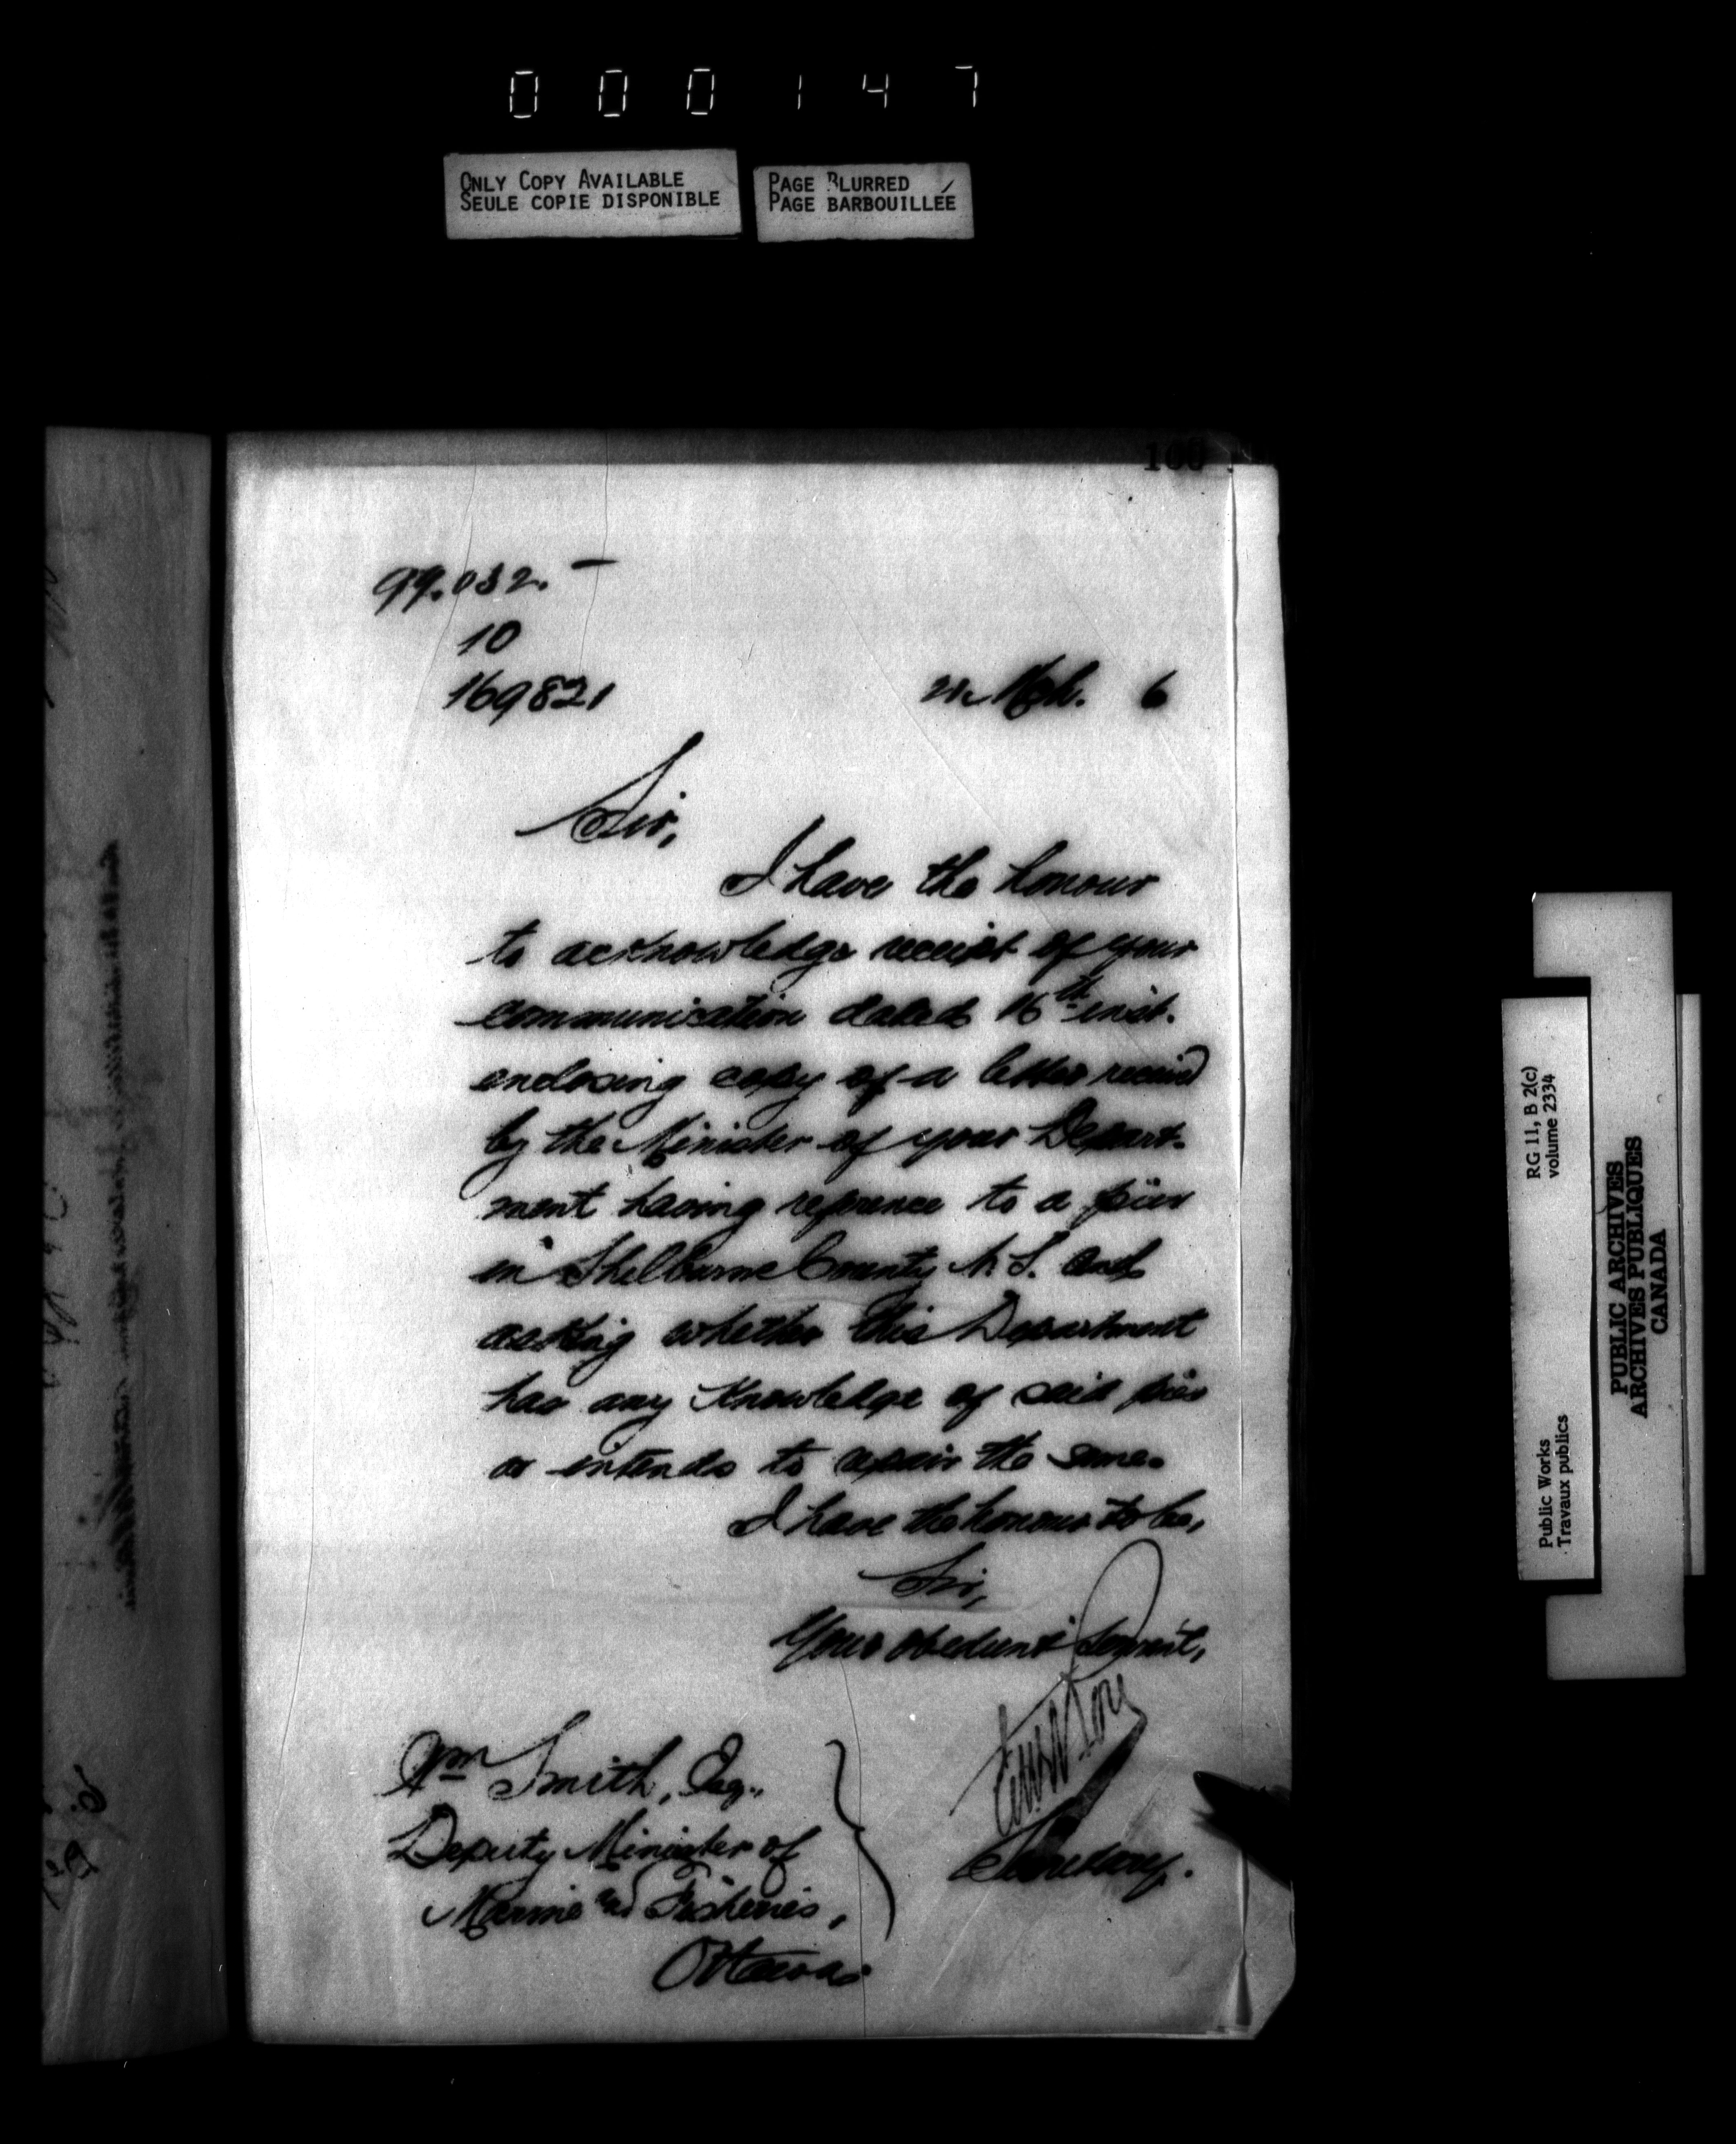 000147
ONLY COPY AVAILABLE
SEULE COPIE DISPONIBLE
PAGE BLURRED
PAGE BARBOUILLÉE
100
99.032. —
10
169821
21 Mch. 6
Sir,
I have the honour
to acknowledge receipt of your
communication dated 16th inst.
enclosing copy of a letter received
by the Minister of your Depart-
ment having reference to a pier
in Shelburne County N.S. and
asking whether this Department
has any Knowledge of said pier
or intends to repair the same.
I have the honour to be,
Sir,
Your obedient Servant,
Secretary.
Wm Smith, Esq.,
Deputy Minister of
Marine and Fisheries,
Ottawa
RG 11, B 2(c)
volume 2334
Public Works
Travaux publics
PUBLIC ARCHIVES
ARCHIVES PUBLIQUES
CANADA